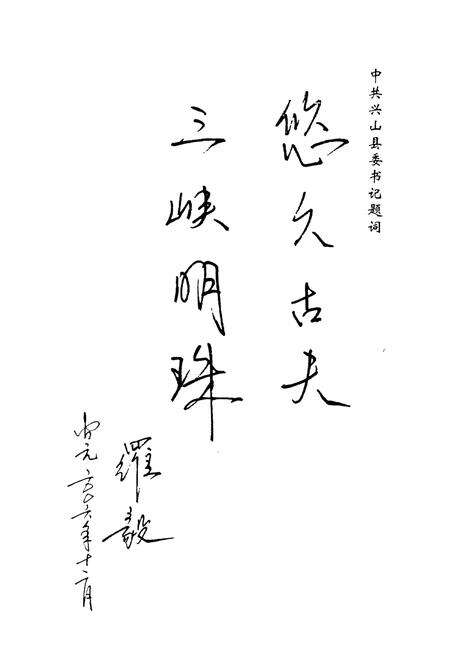 中共兴山县委书记题词
悠久古夫
三峡明珠
罗毅
公元二〇〇六年十二月